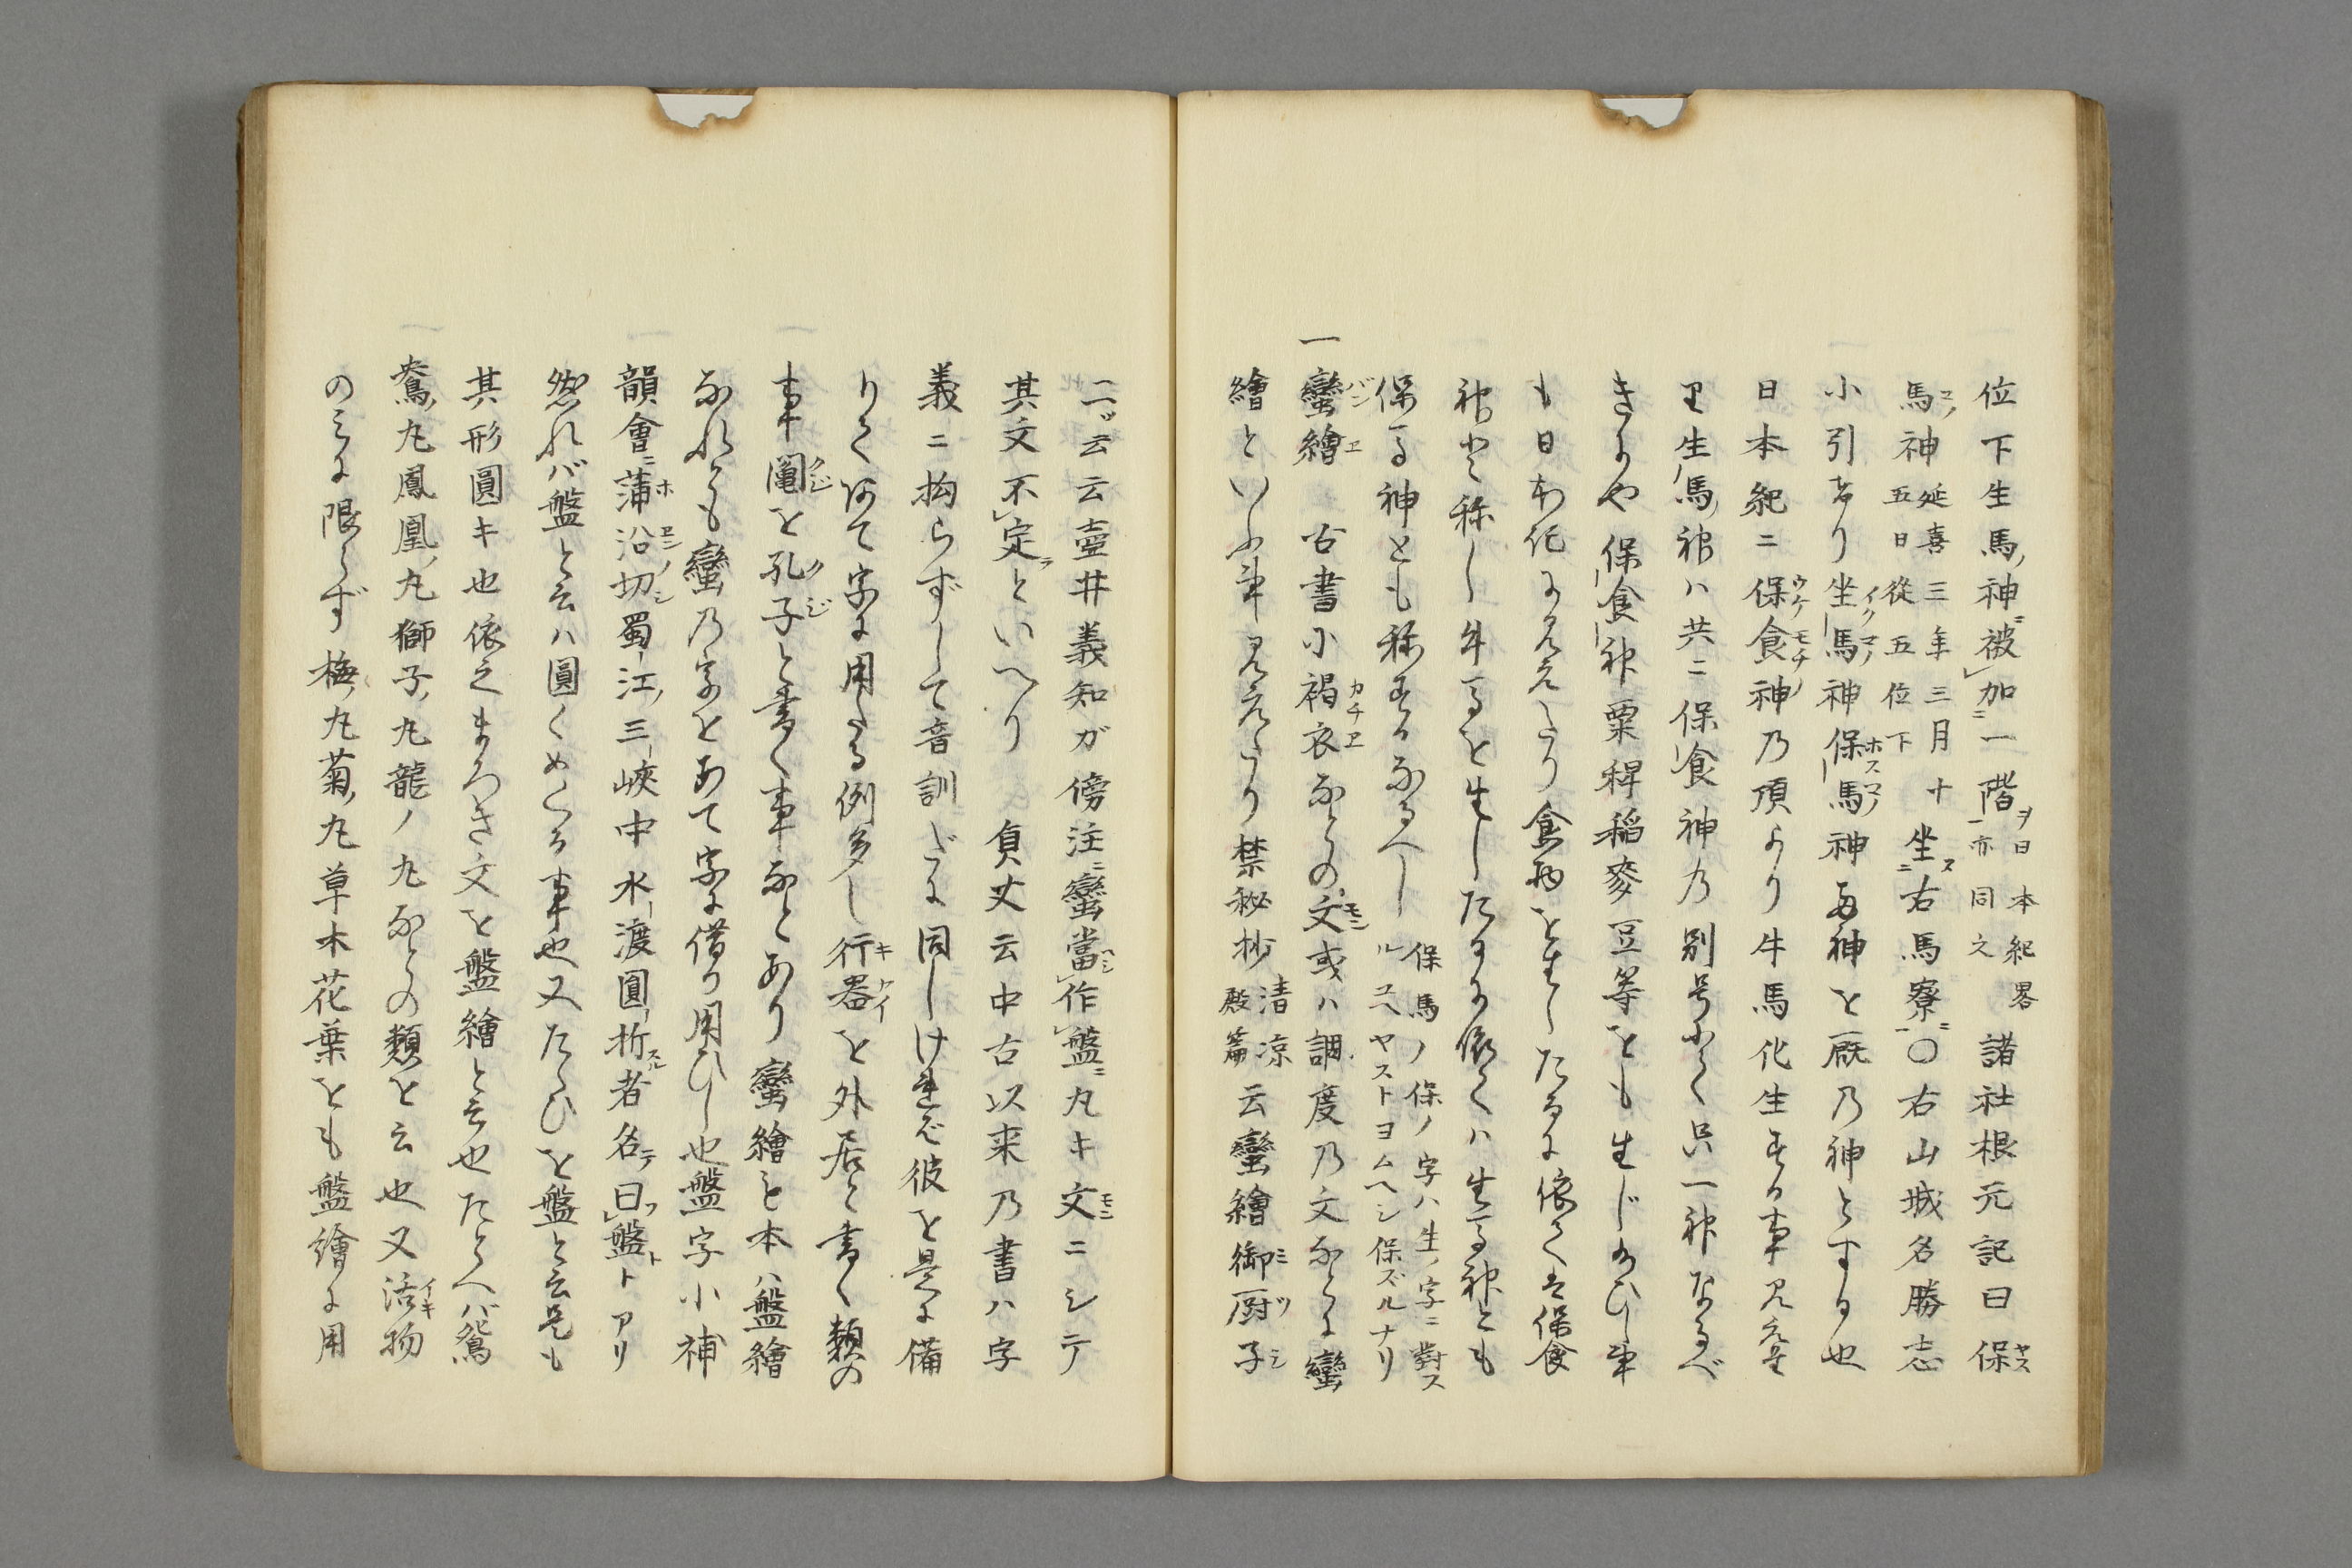 位下生馬神ニ被加一階ヲ日本紀畧一亦同之諸社根元記曰保ヤス
馬マノ神延喜三年三月十五日從五位下坐ス右馬寮ニ〇右山城名勝志
小引たり坐イク馬マノ神保ホス馬マノ神両神を厩乃神とする也
日本紀ニ保ウケ食モチノ神乃頂より牛馬化生する事見えた
り生馬神ハ共ニ保食神乃別号にて只一神なるべ
きにや保食神粟稗稲麥豆等をも生じ給ひし事
も日本紀に見えたり食物を生したるに依ては保食
神と称し牛馬を生したるに依てハ生馬神とも
保馬神とも称するなるへし保馬ノ保ノ字ハ生ノ字ニ對スルユヘヤストヨムヘシ保ズルナリ
一蠻バン繪ヱ 古書小褐カチ衣ヱなとの文モン或ハ調度乃文なとに蠻
繪といふ事見えたり禁秘抄清凉殿篇云蠻繪御ミ厨ヅ子シ
二ッ云云壺井義知が傍注ニ蠻當ヘシ作盤ニ丸キ文モンニシテ
其文不定ラといへり 貞丈云中古以来乃書ハ字
義ニ拘らずして音訓だに同しけれど彼を是に備
りてあて字に用たる例多し行キ器ケイを外居と書く類の
事䦰クジを孔ク子ジと書く事なとあり蠻繪も本ハ盤繪
なれとも蠻乃字をあて字に借り用ひし也盤字小補
韻會ニ蒲ホ沿ヱンノ切シ蜀江三峽中水渡圓折スル者名テ曰フ盤トトアリ
然れバ盤と云ハ圓くめくる事也又たらひを盤と云是も
其形圓キ也依之まろき文を盤繪と云也たとへバ鴛
鴦丸鳳凰丸獅子丸龍ノ丸なとの類を云也又活イキ物
のミに限らず梅丸菊丸草木花葉をも盤繪に用